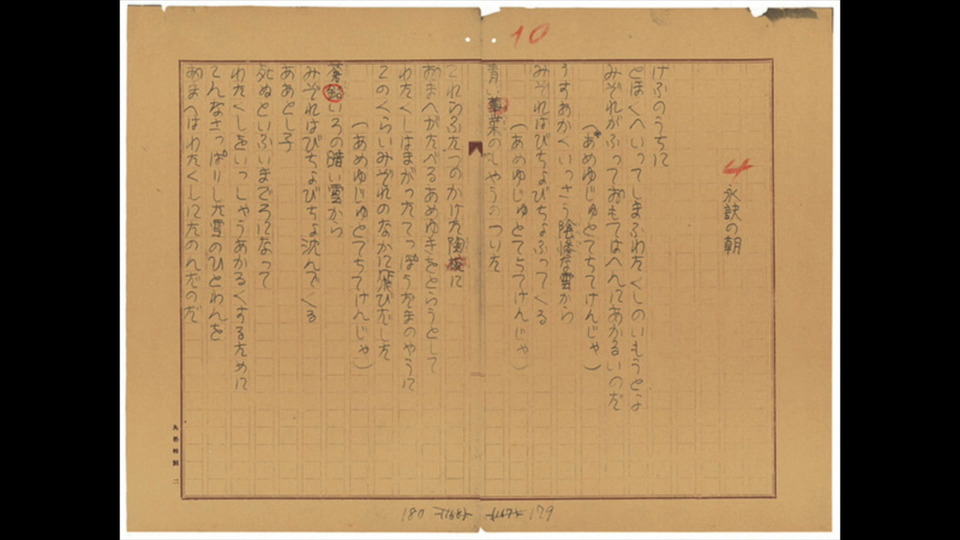 10
4
永訣の朝
けふのうちに
とほくへいってしまふわたくしのいもうとよ
みぞれがふっておもてはへんにあかるいのだ
(*あめゆじゅとてちてけんじゃ)
うすあかくいっさう陰惨な雲から
みぞれはびちょびちょふってくる
(あめゆじゅとてちてけんじゃ)
青い蓴菜のもやうのついた
これらふたつのかけた陶椀に
おまへがたべるあめゆきをとらうとして
わたくしはまがったてっぽうだまのやうに
このくらいみぞれのなかに飛びだした
(あめゆじゅとてちてけんじゃ)
蒼鉛いろの暗い雲から
みぞれはびちょびちょ沈んでくる
ああとし子
死ぬといふいまごろになって
わたくしをいっしゃうあかるくするために
こんなさっぱりした雪のひとわんを
おまへはわたくしにたのんだのだ
丸善特製 二
179
180